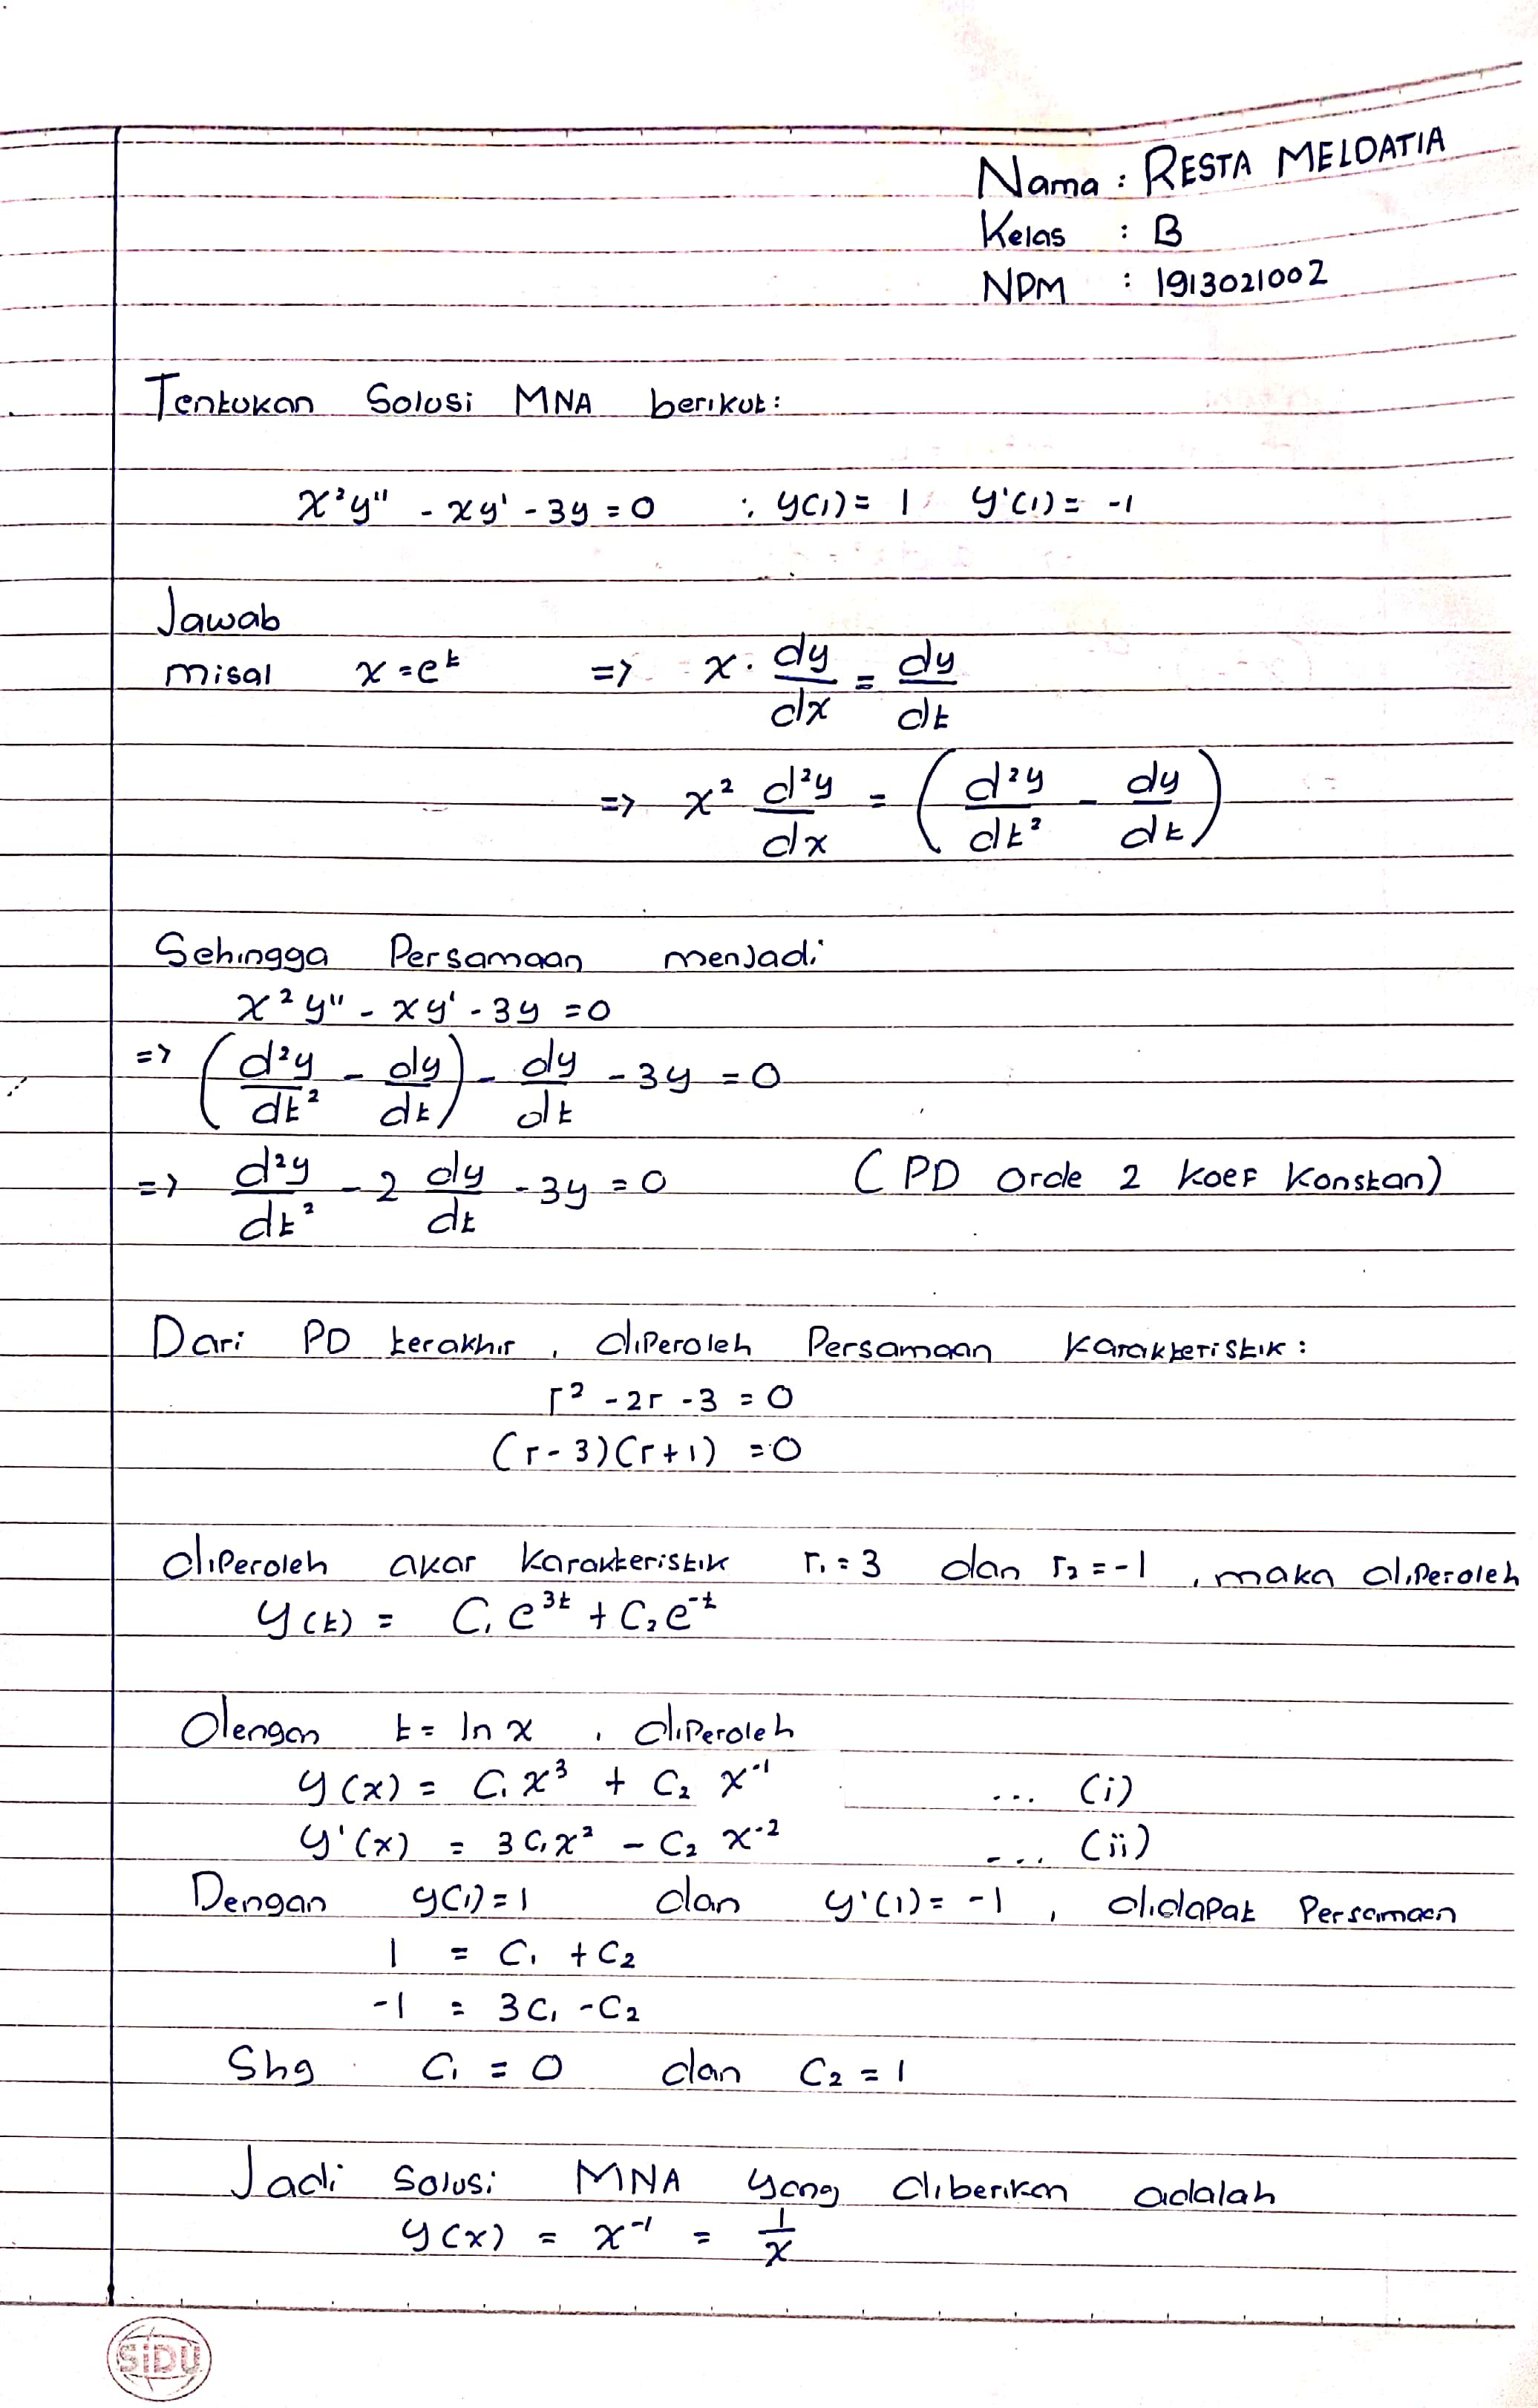 Nama : RESTA MELDATIA
Kelas : B
NPM : 1913021002
Tentukan Solusi MNA berikut:
x²y'' - xy' - 3y = 0 ; y(1) = 1, y'(1) = -1
Jawab
misal x = eᵗ => x. dy/dx = dy/dt
=> x² d²y/dx = (d²y/dt² - dy/dt)
Sehingga Persamaan menjadi
x²y'' - xy' - 3y = 0
=> (d²y/dt² - dy/dt) - dy/dt - 3y = 0
=> d²y/dt² - 2 dy/dt - 3y = 0 (PD Orde 2 koef Konstan)
Dari PD terakhir, diperoleh Persamaan Karakteristik :
r² - 2r - 3 = 0
(r - 3)(r + 1) = 0
diperoleh akar Karakteristik r₁ = 3 dan r₂ = -1, maka diperoleh
y(t) = C₁e³ᵗ + C₂e⁻ᵗ
Dengan t = ln x, diperoleh
y(x) = C₁x³ + C₂ x⁻¹ ... (i)
y'(x) = 3C₁x² - C₂ x⁻² ... (ii)
Dengan y(1) = 1 dan y'(1) = -1, didapat Persamaan
1 = C₁ + C₂
-1 = 3C₁ - C₂
Shg C₁ = 0 dan C₂ = 1
Jadi Solusi MNA yang diberikan adalah
y(x) = x⁻¹ = 1/x
SiDU